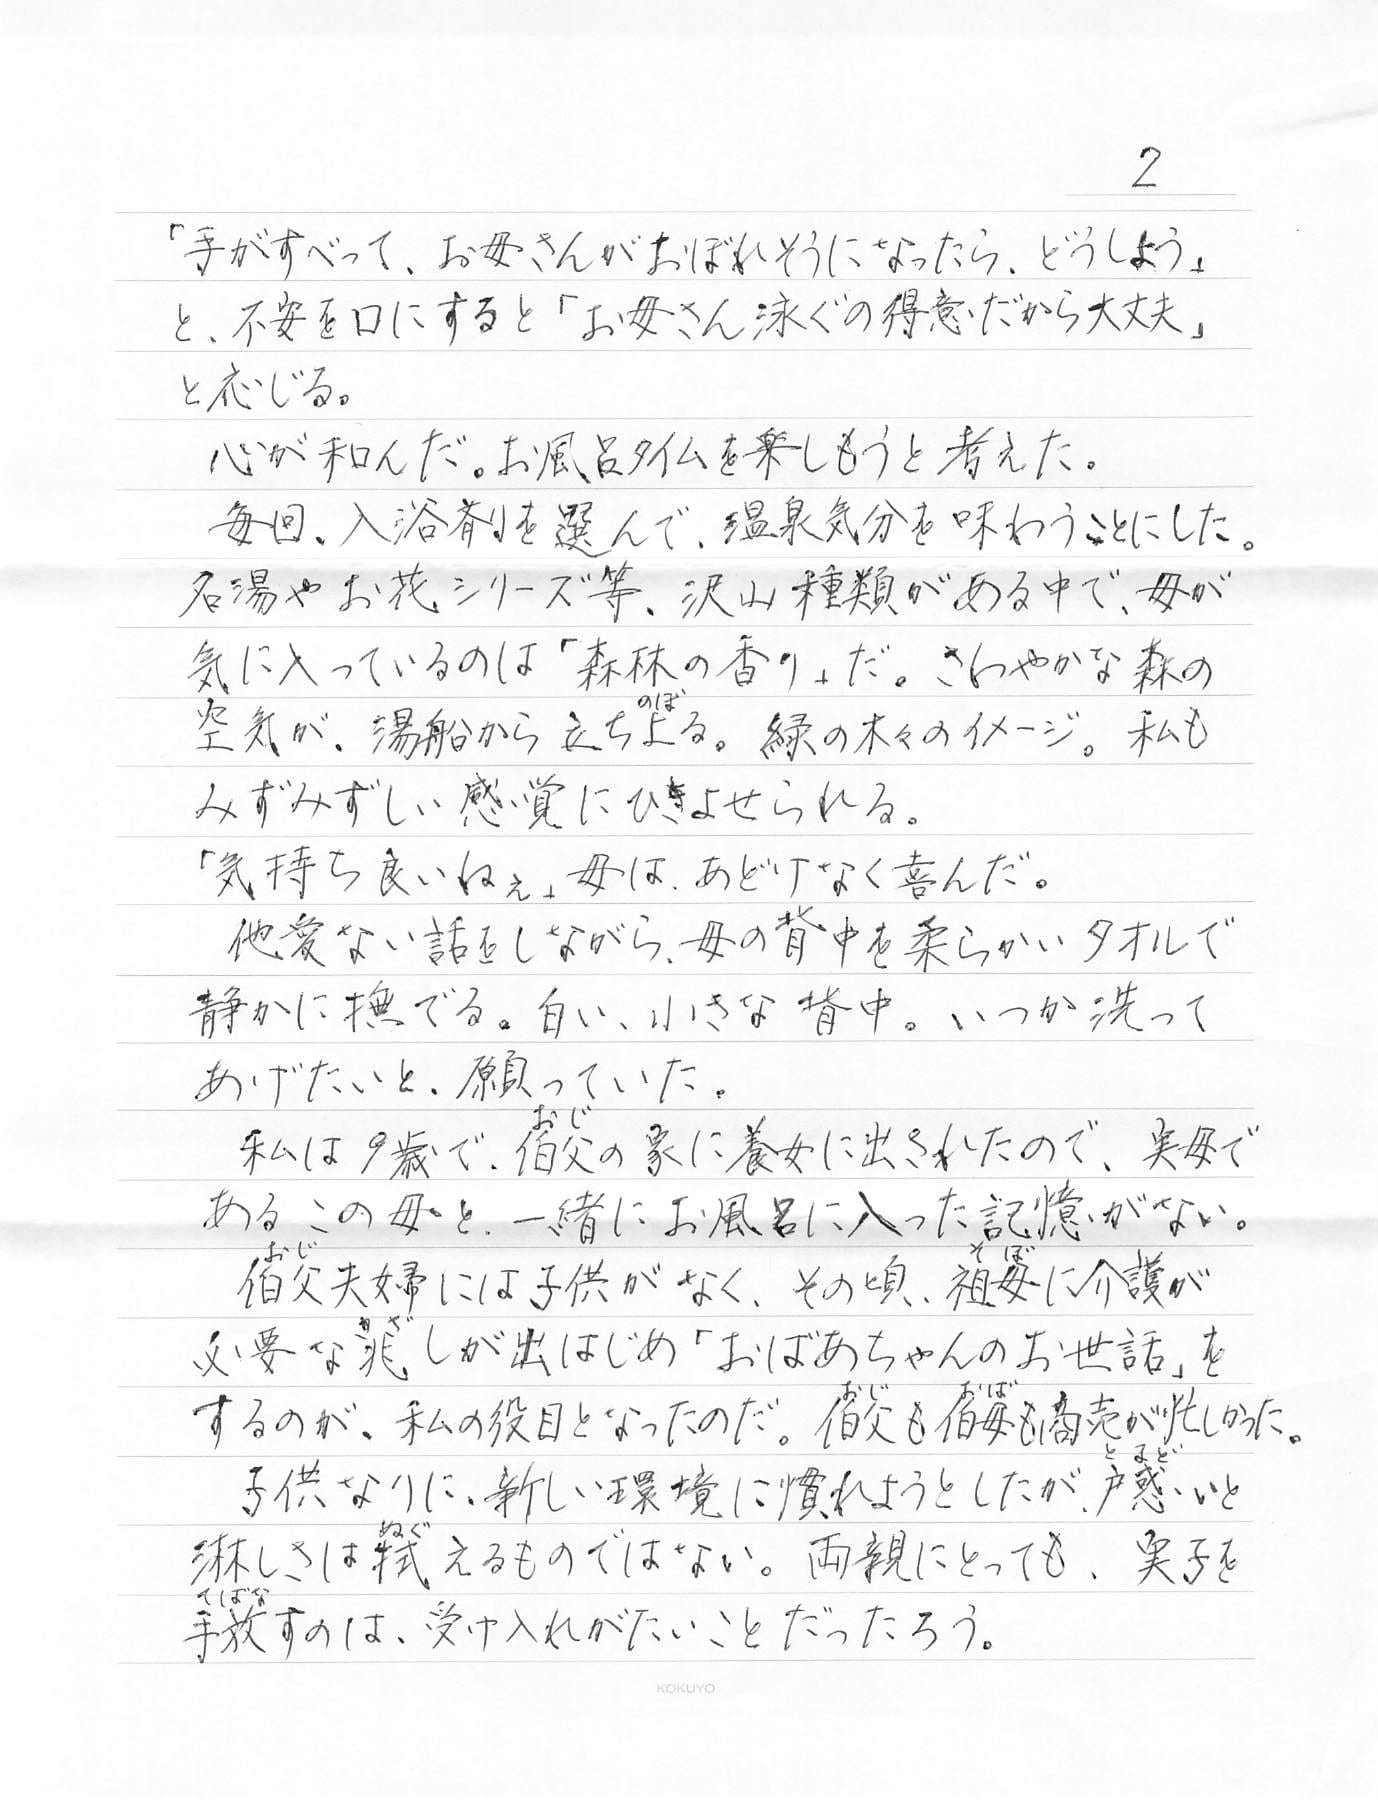 2
「手がすべって、お母さんがおぼれそうになったら、どうしよう」
と、不安を口にすると「お母さん泳ぐの得意だから大丈夫」
と応じる。
心が和んだ。お風呂タイムを楽しもうと考えた。
毎回、入浴剤を選んで、温泉気分を味わうことにした。
名湯やお花シリーズ等、沢山種類がある中で、母が
気に入っているのは「森林の香り」だ。さわやかな森の
空気が、湯船から立ち上(のぼ)る。緑の木々のイメージ。私も
みずみずしい感覚にひきよせられる。
「気持ち良いねぇ」母は、あどけなく喜んだ。
他愛ない話をしながら、母の背中を柔らかいタオルで
静かに撫でる。白い、小さな背中。いつか洗って
あげたいと、願っていた。
私は9歳で、伯父(おじ)の家に養女に出されたので、実母で
あるこの母と、一緒にお風呂に入った記憶がない。
伯父(おじ)夫婦には子供がなく、その頃、祖母(そぼ)に介護が
必要な兆(きざ)しが出はじめ「おばあちゃんのお世話」を
するのが、私の役目となったのだ。伯父(おじ)も伯母(おば)も商売が忙しかった。
子供なりに、新しい環境に慣れようとしたが、戸惑(とまど)いと
淋しさは拭(ぬぐ)えるものではない。両親にとっても、実子を
手放(てばな)すのは、受け入れがたいことだったろう。
KOKUYO